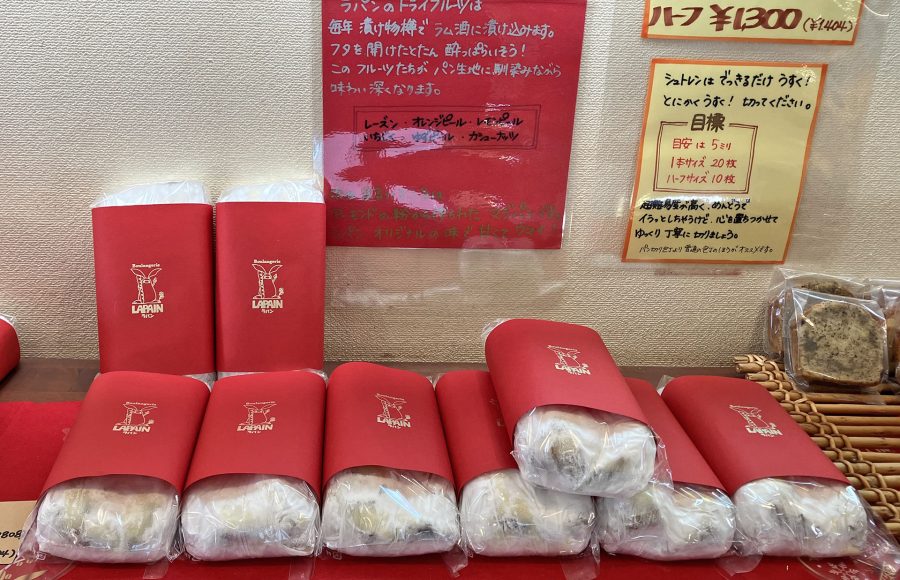 ラパンのドライフルーツは
毎年 漬け物樽で ラム酒に漬け込みます。
フタを開けたとたん 酔っぱらいそう！
この フルーツたちが パン生地に馴染みながら
味わい深くなります。
レーズン・オレンジピール・レモンピール
いちじく・ピール・カシューナッツ
オリジナルの味
ハーフ ¥1,300 (¥1,404)
シュトレンは できるだけ うすく！
とにかく うすく！ 切ってください。
目標
目安は 5ミリ
1本サイズ 20枚
ハーフサイズ 10枚
難易度が高く、めんどうで
イラっとしちゃうけど、心を落ちつかせて
ゆっくり 丁寧に 切りましょう。
パン切り包丁より 普通の包丁のほうが オススメです。
Boulangerie
LAPAIN
ラパン
Boulangerie
LAPAIN
ラパン
Boulangerie
LAPAIN
ラパン
Boulangerie
LAPAIN
ラパン
LAPAIN
LAPAIN
LAPAIN